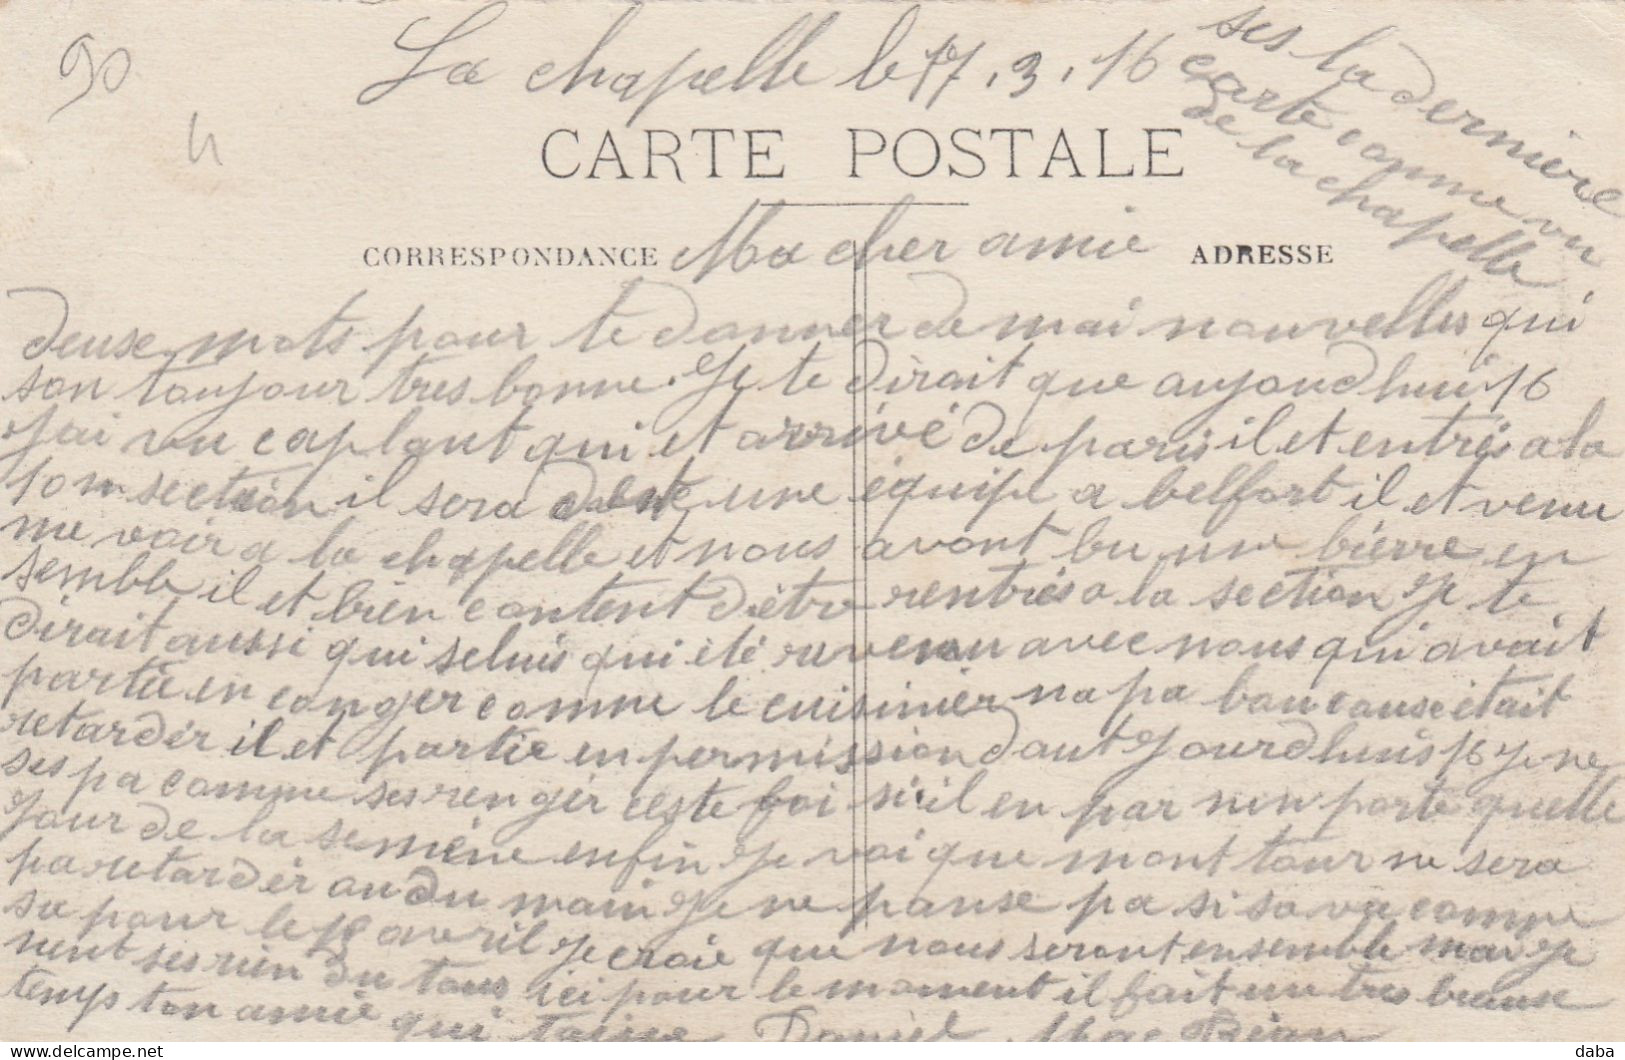 90
4
La chapelle le 17.3.16
ses la dernière
carte comme vu
de la chapelle
CARTE POSTALE
CORRESPONDANCE
Ma cher amie
ADRESSE
deuse mots pour te donner de mai nouvelles qui
son toujour tres bonne. Je te dirait que aujourdhui 16
Jai vu caplant qui et arrivé de paris il et entrés a la
10m section il sera dans une équipe a belfort il et venu
me voir a la chapelle et nous avont bu une bierre en
semble il et bien content dêtre rentrés a la section Je te
dirait aussi qui seluis qui été revenu avec nous qui avait
partie en conger comme le cuisinier na pa bou cause était
retarder il et partie en permission daut Jourdhuis 16 Je ne
ses pa comme ses renger ceste foi si il en par nin porte quelle
Jour de la seméne enfin Je voi que mont tour ne sera
pa retarder au du main Je ne panse pa si sa va comme
sa pour le 12 avril Je croie que nous seront ensemble mai Je
nent ses rien du tous ici pour le moment il fait un tres beause
temps ton amie qui taime Daniel